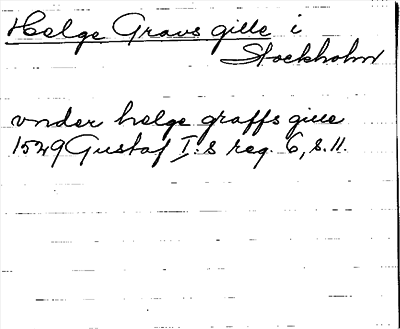 Helge Gravs gille i
Stockholm
vnder helge graffs gille
1529 Gustaf I:s reg. 6, s. 11.